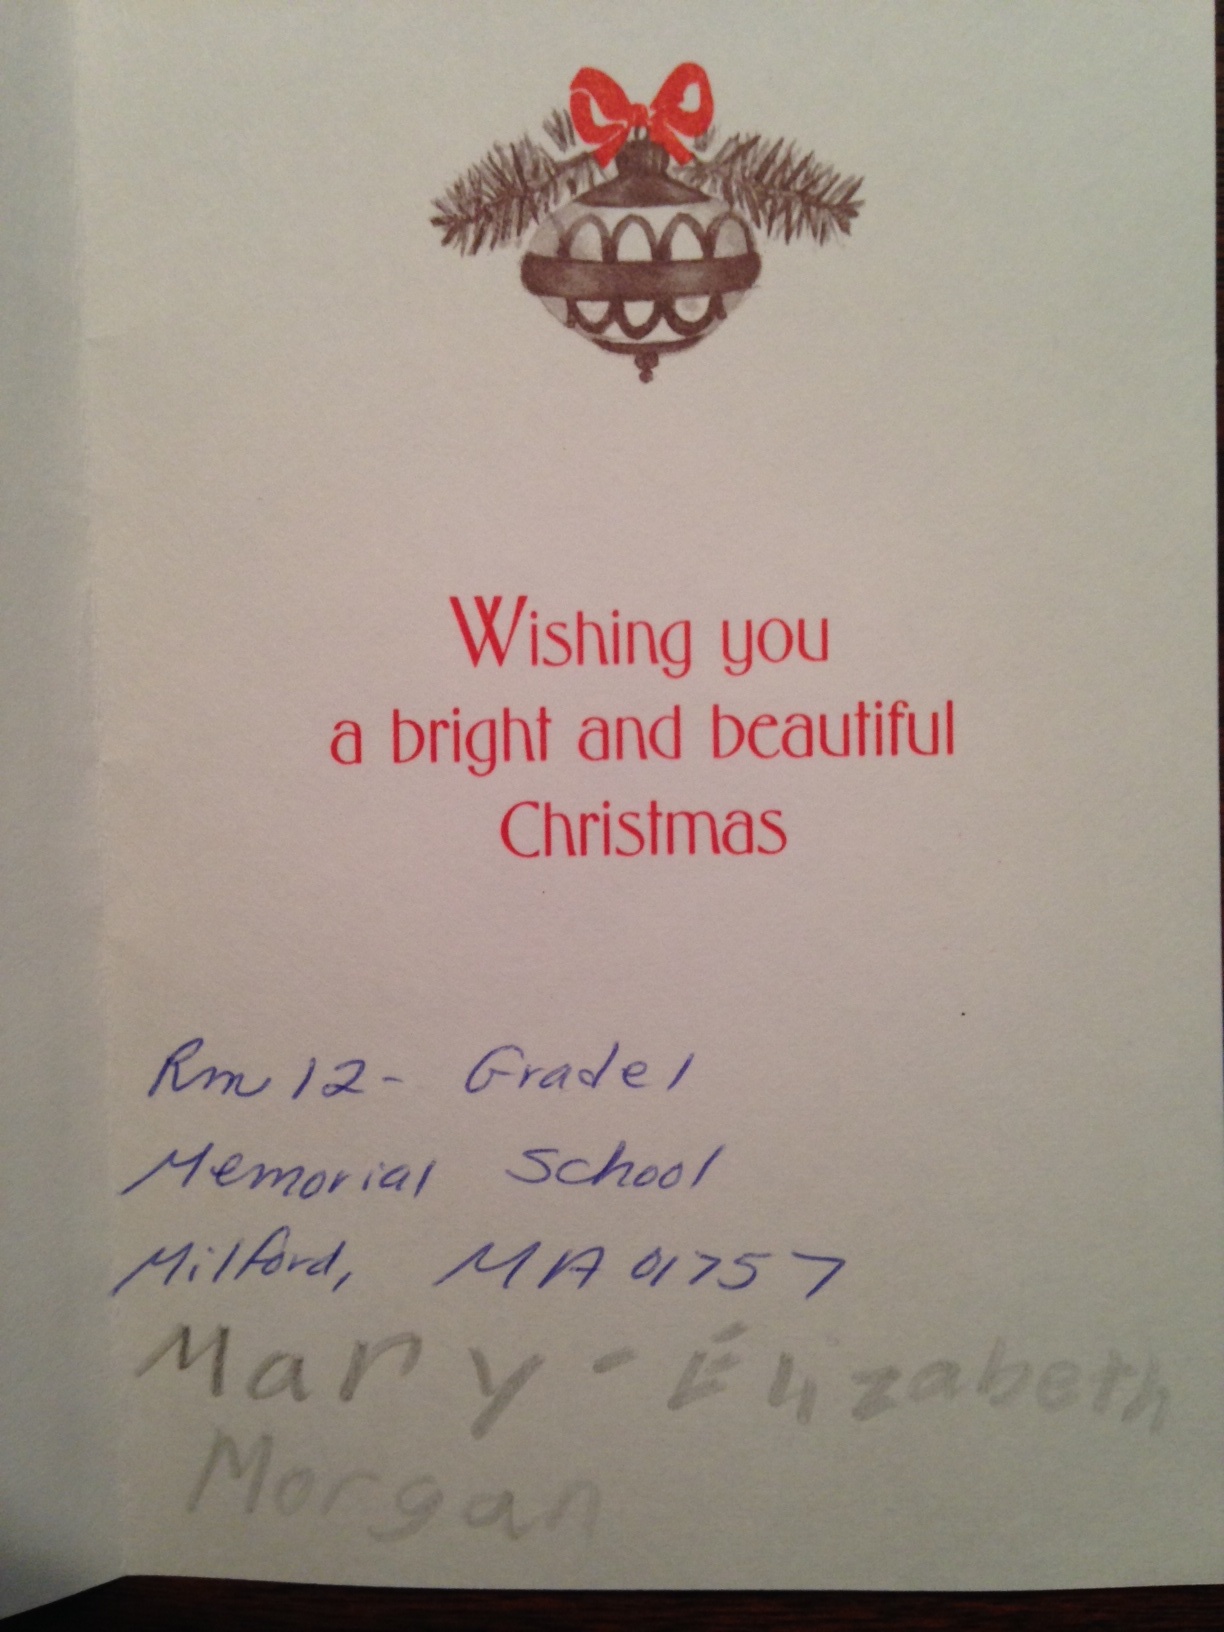 Wishing you
a bright and beautiful
Christmas
Rm 12- Grade 1
Memorial School
Milford, MA 01757
Mary-Elizabeth
Morgan